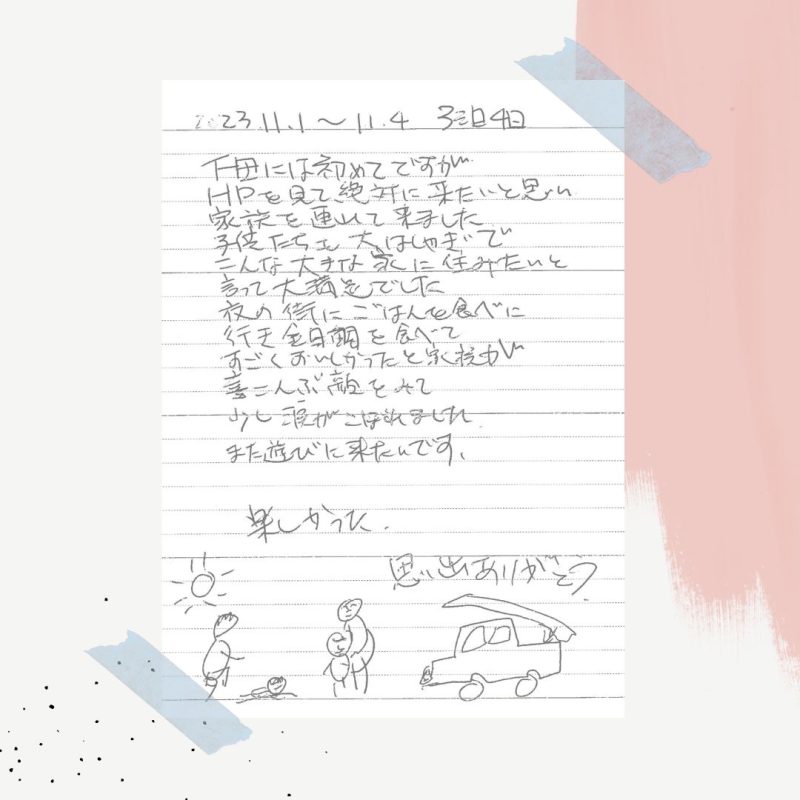 2023.11.1〜11.4 3泊4日
下田には初めてですが
HPを見て絶対に来たいと思い
家族を連れて来ました
子供たちも大はしゃぎで
こんな大きな家に住みたいと
言って大満足でした
夜の街にごはんを食べに
行き金目鯛を食べて
すごくおいしかったと家族が
喜こんぶ顔をみて
少し涙がこぼれました
また遊びに来たいです。
楽しかった.
思い出ありがとう